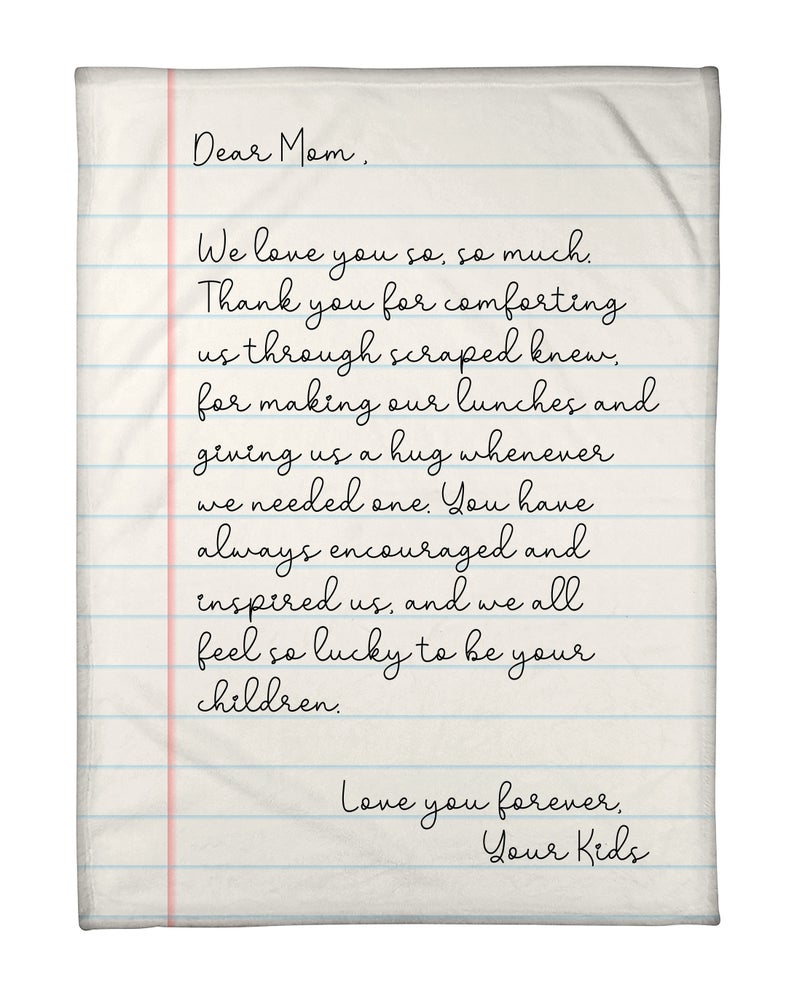 Dear Mom,
We love you so, so much.
Thank you for comforting
us through scraped knew,
for making our lunches and
giving us a hug whenever
we needed one. You have
always encouraged and
inspired us, and we all
feel so lucky to be your
children.
Love you forever,
Your Kids